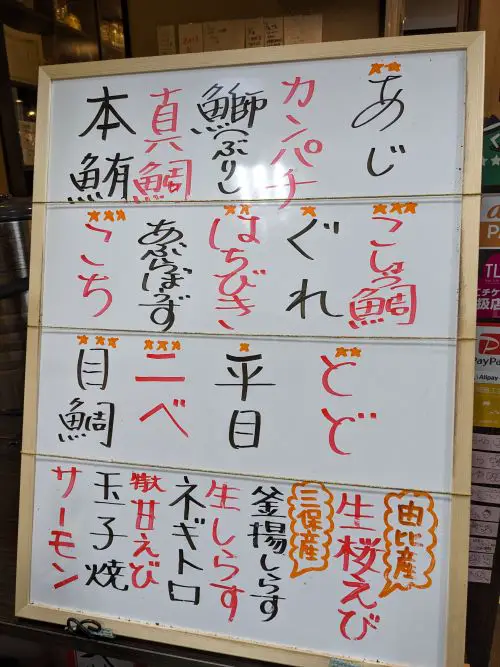 あじ
カンパチ
鰤(ぶり)
真鯛
本鮪
こしょう鯛
ぐれ
はちびき
あぶらぼうず
こち
とど
平目
ニベ
目鯛
由比産
生桜えび
三保産
釜揚しらす
生しらす
ネギトロ
特大甘えび
玉子焼
サーモン
PayPay
Alipay